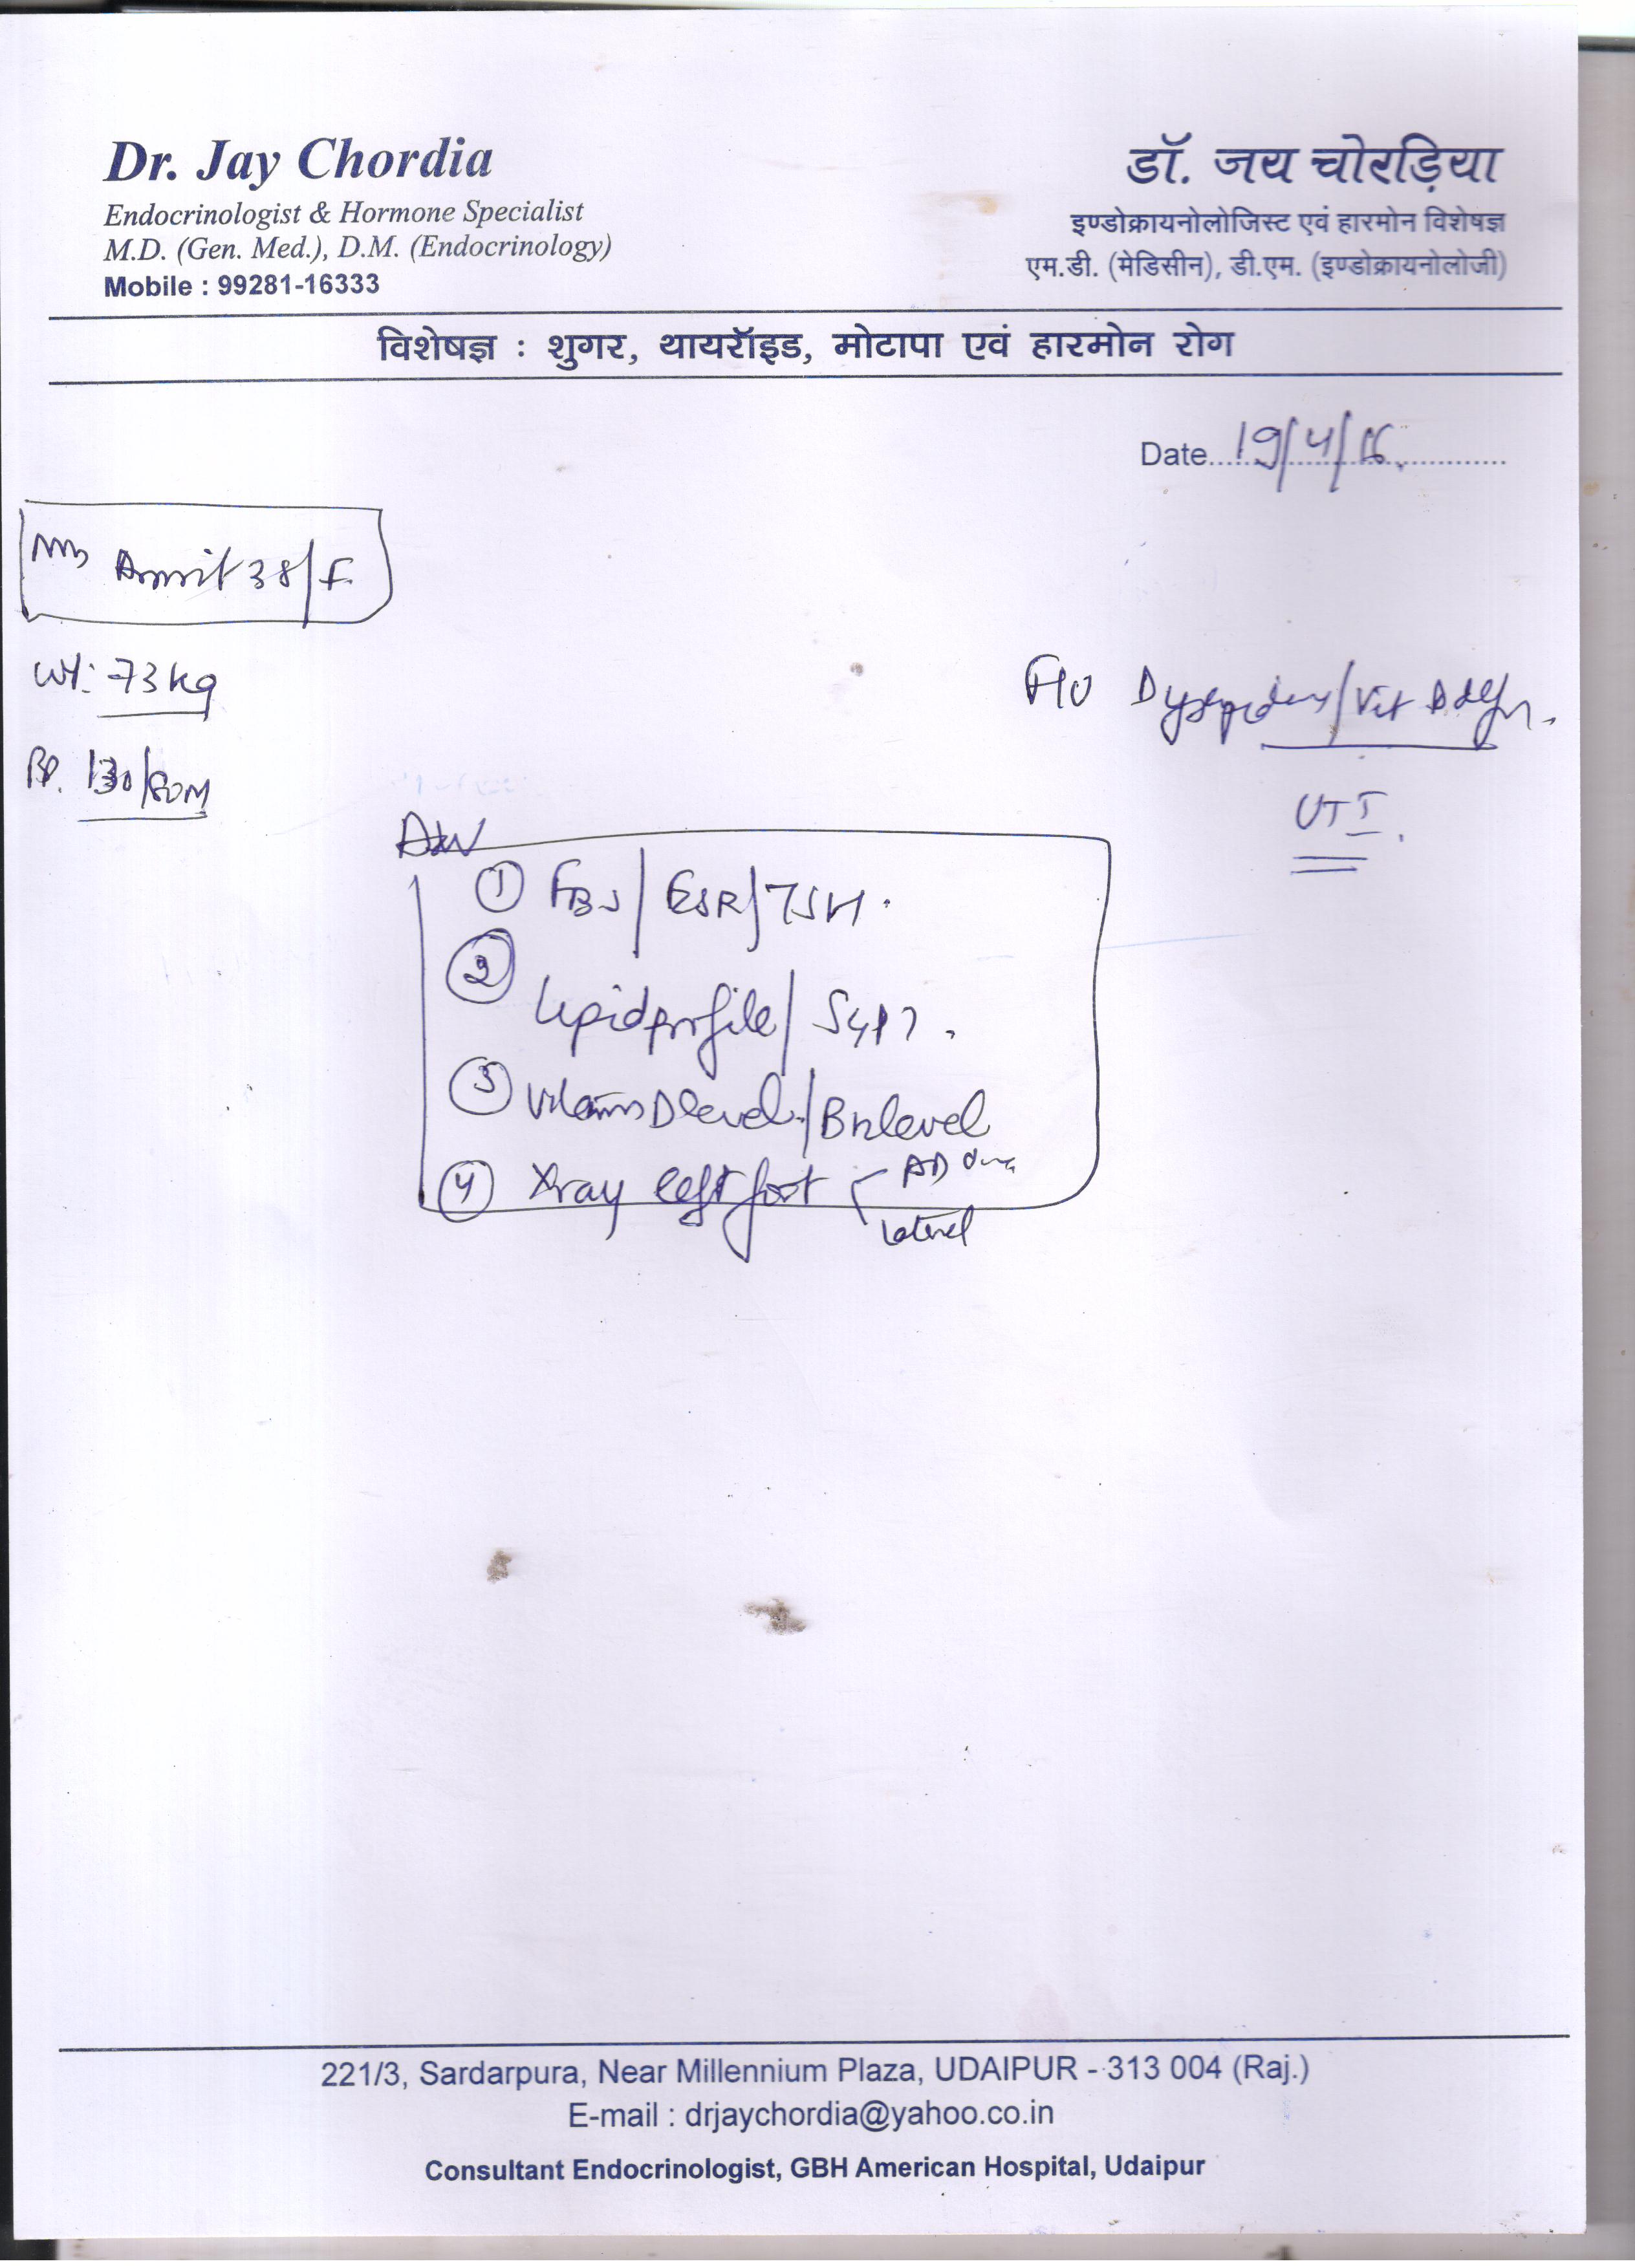 Dr. Jay Chordia
Endocrinologist & Hormone Specialist
M.D. (Gen. Med.), D.M. (Endocrinology)
Mobile : 99281-16333
डॉ. जय चोरड़िया
इण्डोक्रायनोलोजिस्ट एवं हारमोन विशेषज्ञ
एम.डी. (मेडिसीन), डी.एम. (इण्डोक्रायनोलोजी)
विशेषज्ञ : शुगर, थायरॉइड, मोटापा एवं हारमोन रोग
Date 19/4/16
Amrit 38/F
Wt: 73 kg
BP. 130/80
F/U Vit D
UTI
① FBS/ESR/TSH
② Lipid profile/SGPT
③ Vitamin D level/B12 level
④ Xray left foot
Lateral
221/3, Sardarpura, Near Millennium Plaza, UDAIPUR - 313 004 (Raj.)
E-mail : drjaychordia@yahoo.co.in
Consultant Endocrinologist, GBH American Hospital, Udaipur